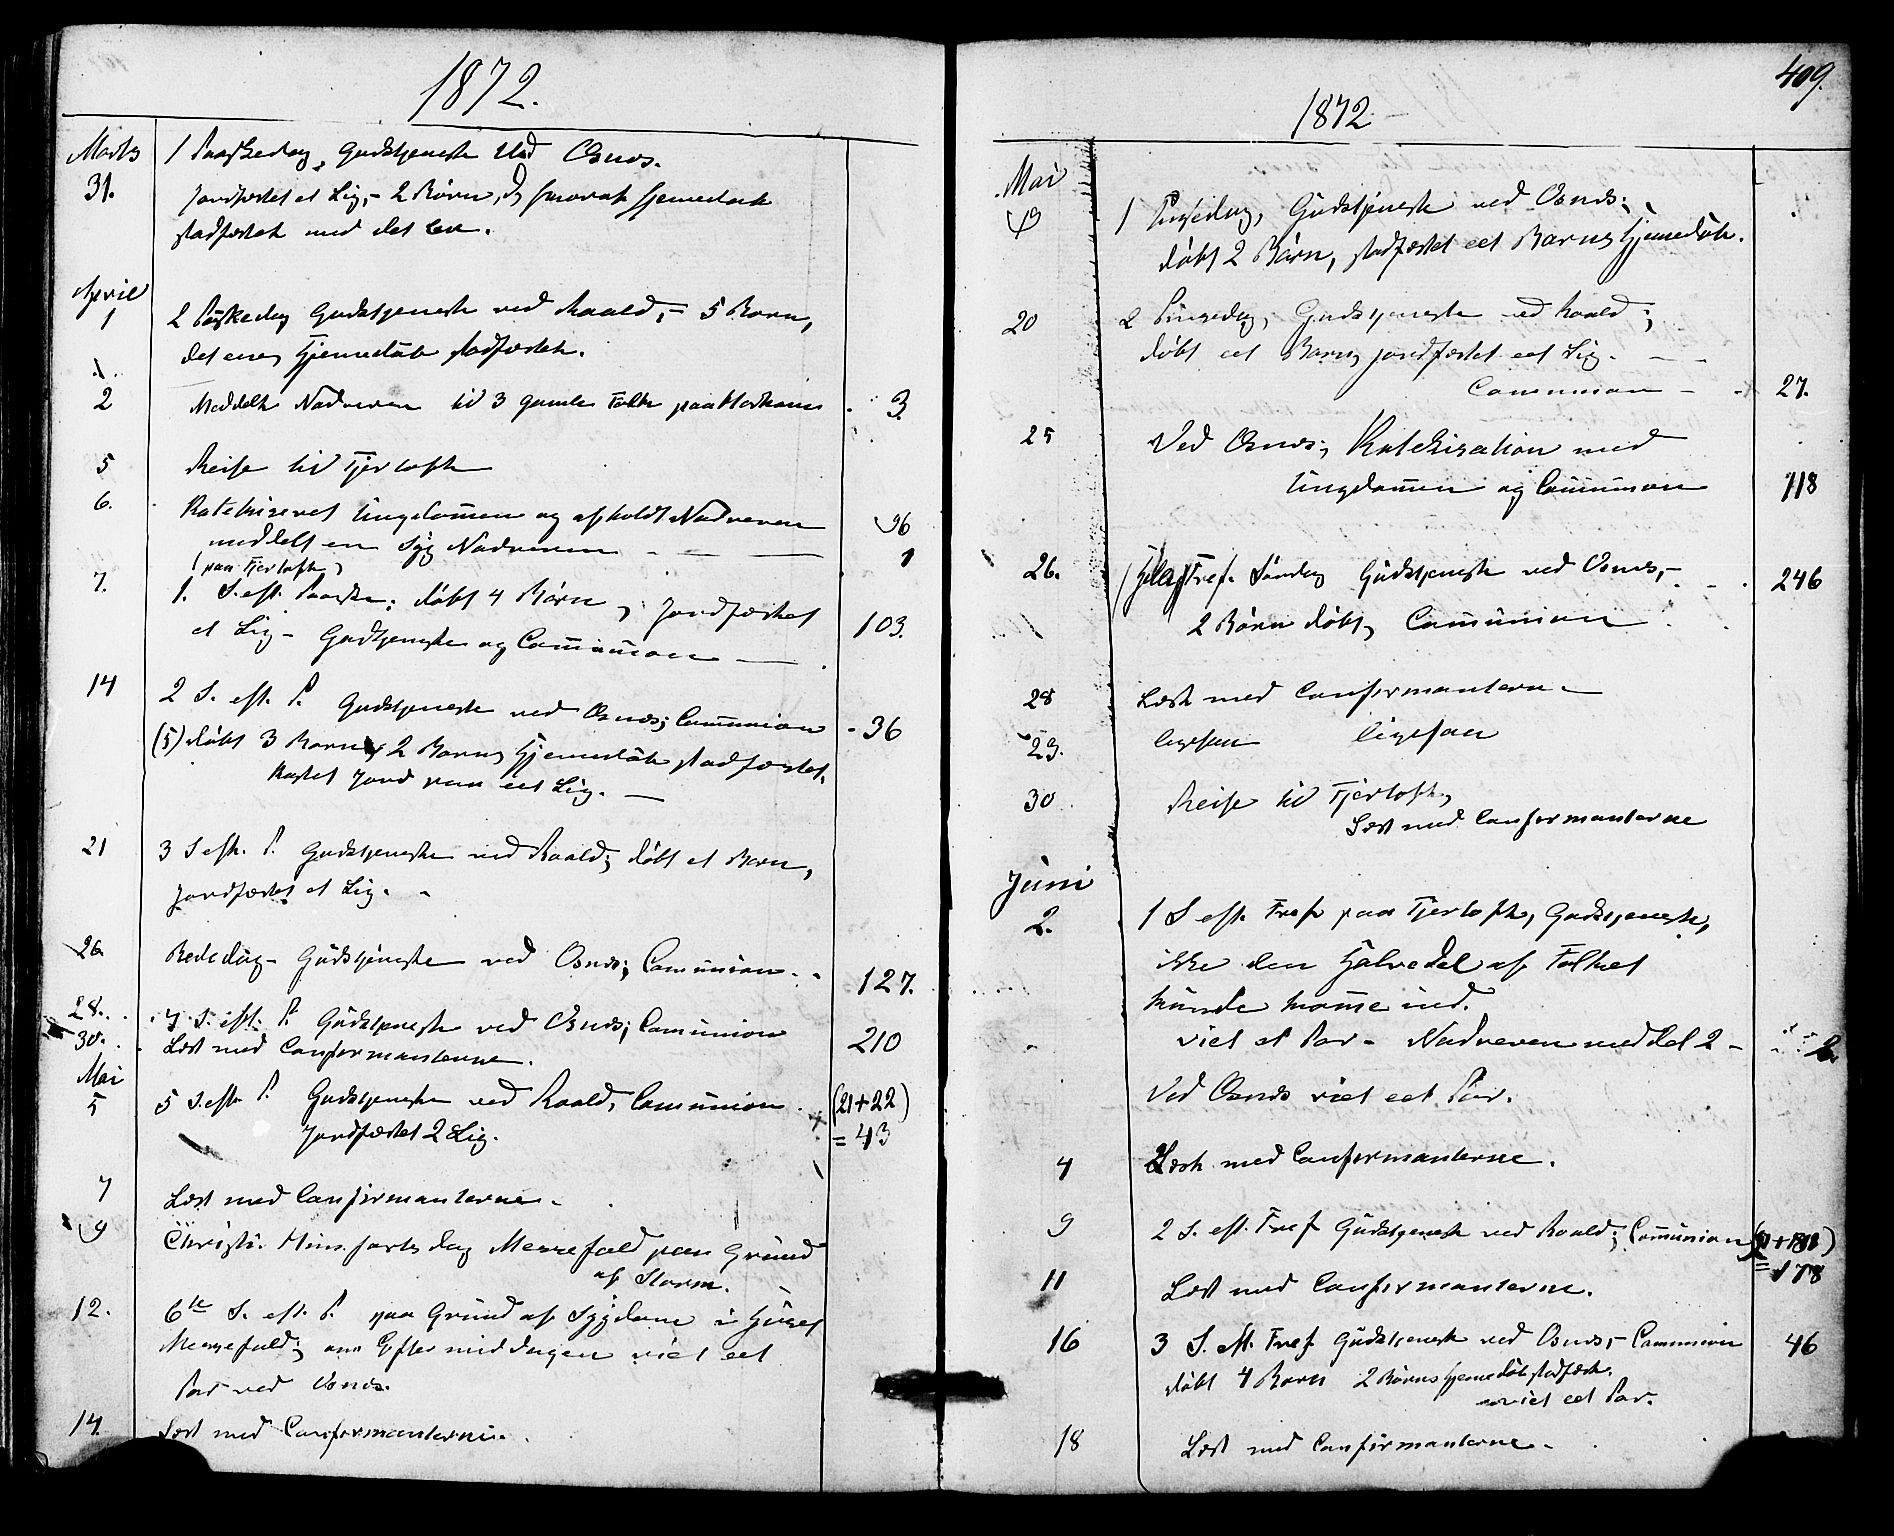 1872.
Marts 31. 1 Paaskedag, Gudstjeneste ved Osnæs.
jordfæstet et Lig, – 2 Børn, Hjemmedøb
stadfæstet med det ene.
April 1 2 Paaskedag Gudstjeneste ved Roald, – 5 Børn,
det enes Hjemmedøb stadfæstet.
2 Meddelt Nadveren til 3 gamle Folk paa 3.
5 Reise til Fjertoft
6. Katekiseret Ungdommen og afholdt Nadveren 96
meddelt en Syg Nadveren – 1
(paa Fjertoft)
7. 1. S. eft. Paaske; døbt 4 Børn, jordfæstet
et Lig – Gudstjeneste og Communion – 103.
14 2 S. eft. P. Gudstjeneste ved Osnæs; Communion – 36
(5) døbt 3 Børn, 2 Børns Hjemmedøb stadfæstet.
Kastet Jord paa eet Lig. –
21 3 S eft. P. Gudstjeneste ved Roald; døbt et Barn,
jordfæstet et Lig. –
26 Bededag – Gudstjeneste ved Osnæs; Communion – 127.
28. 4 S. eft. P. Gudstjeneste ved Osnæs; Communion 210
30. Læst med Confirmanterne.
Mai 5 5 S. eft P. Gudstjeneste ved Roald, Communion (21+22)
Jordfæstet 2 Lig. = 43
7 Læst med Confirmanterne.
9 Christi Himmelfartsdag Messefald paa Grund
af Storm.
12. 6te S. eft. P. paa Grund af Sygdom i Huset
Messefald; om Eftermiddagen viet eet
Par ved Osnæs.
14. Læst med Confirmanterne.
409.
1872
Mai 19 1 Pinsedag, Gudstjeneste ved Osnæs;
døbt 2 Børn, stadfæstet eet Barns Hjemmedøb.
20 2 Pinsedag, Gudstjeneste ved Roald;
døbt eet Barn, jordfæstet eet Lig. –
Communion – 27.
25 Ved Osnæs; Katekisation med
Ungdommen og Communion 118
26. Tref. Søndag Gudstjeneste ved Osnæs, – 246
2 Børn døbt, Communion
28 Læst med Confirmanterne –
29. ligesaa ligesaa
30 Reise til Fjertoft,
Læst med Confirmanterne
Juni 2. 1 S eft. Tref. paa Fjertoft, Gudstjeneste,
ikke den Halvedel af Folket
kunde komme ind.
viet et Par – Nadveren meddel 2 – 2.
Ved Osnæs viet eet Par.
4 Læst med Confirmanterne.
9 2 S. eft. Tref Gudstjeneste ved Roald; Communion
= 178
11 Læst med Confirmanterne.
16 3 S. eft. Tref Gudstjeneste ved Osnæs, – Communion 46
døbt 4 Børn 2 Børns Hjemmedøb stadfæst.
viet eet Par.
18 Læst med Confirmanterne.